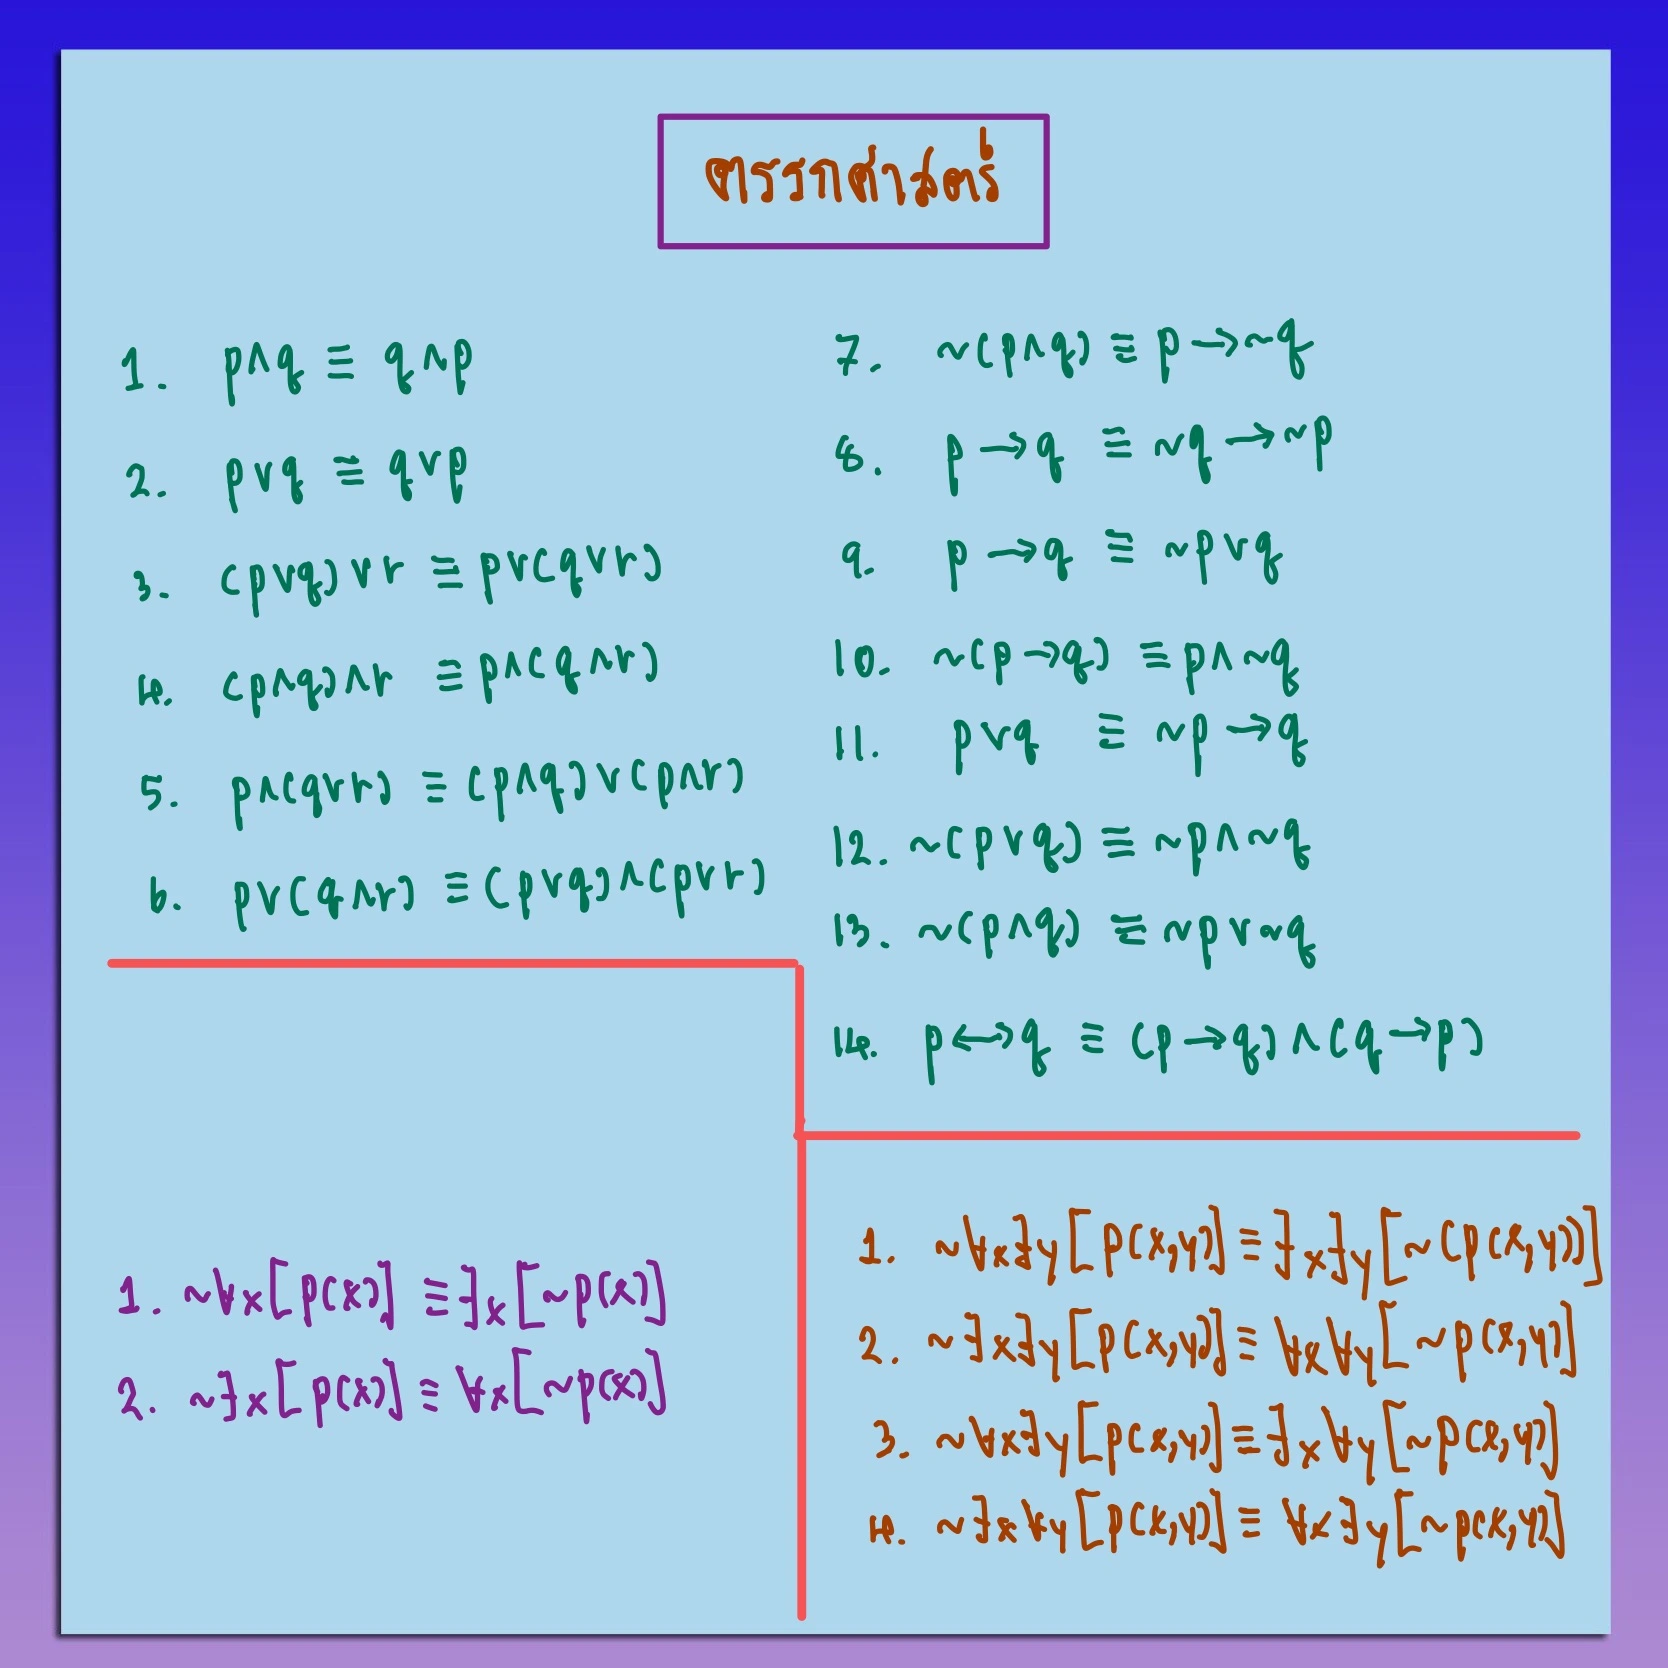 ตรรกศาสตร์
1. p∧q ≡ q∧p
2. p∨q ≡ q∨p
3. (p∨q)∨r ≡ p∨(q∨r)
4. (p∧q)∧r ≡ p∧(q∧r)
5. p∧(q∨r) ≡ (p∧q)∨(p∧r)
6. p∨(q∧r) ≡ (p∨q)∧(p∨r)
7. ~(p∧q) ≡ p→~q
8. p→q ≡ ~q→~p
9. p→q ≡ ~p∨q
10. ~(p→q) ≡ p∧~q
11. p∨q ≡ ~p→q
12. ~(p∨q) ≡ ~p∧~q
13. ~(p∧q) ≡ ~p∨~q
14. p↔q ≡ (p→q)∧(q→p)
1. ~∀x[p(x)] ≡ ∃x[~p(x)]
2. ~∃x[p(x)] ≡ ∀x[~p(x)]
1. ~∀x∃y[p(x,y)] ≡ ∃x∃y[~(p(x,y))]
2. ~∃x∃y[p(x,y)] ≡ ∀x∀y[~p(x,y)]
3. ~∀x∃y[p(x,y)] ≡ ∃x∀y[~p(x,y)]
4. ~∃x∀y[p(x,y)] ≡ ∀x∃y[~p(x,y)]